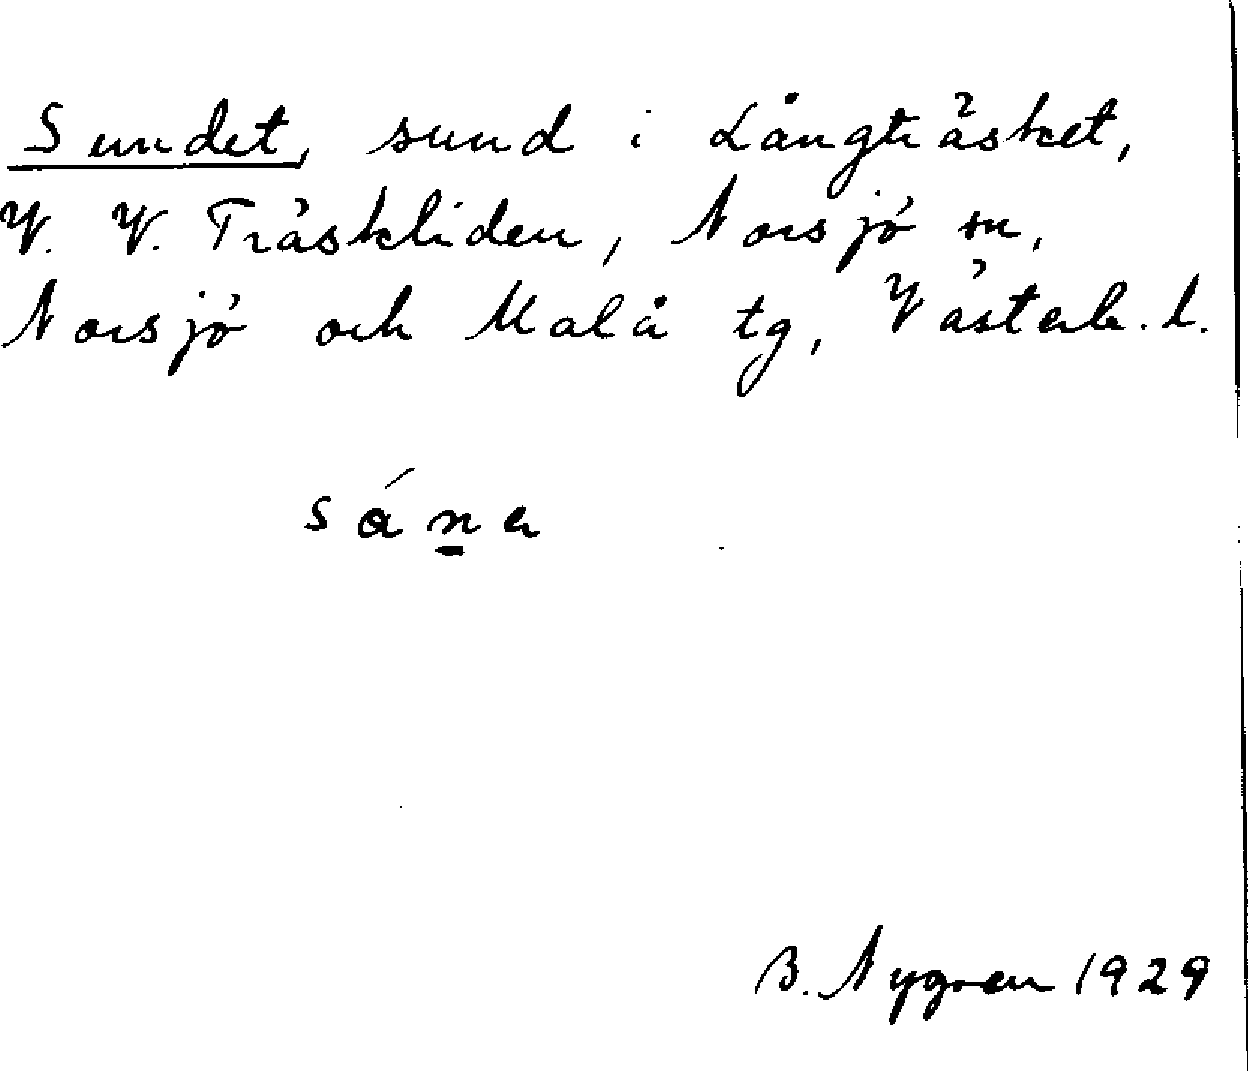 Sundet, sund i Långträsket,
V. V. Träskliden, Norsjö sn,
Norsjö och Malå tg, Västerb. l.
B. Nygren 1929